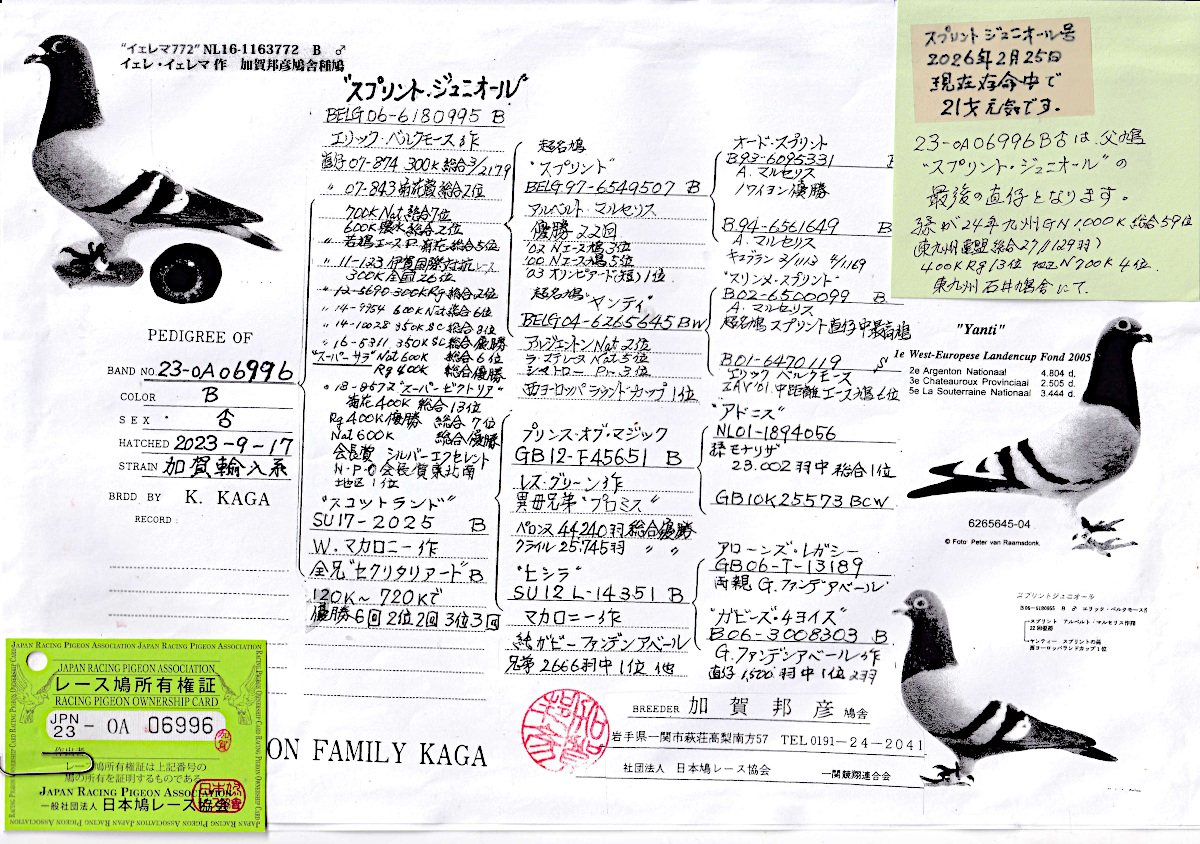 "イェレマ772" NL16-1163772 B ♂
イェレ・イェレマ 作 加賀邦彦鳩舎種鳩
PEDIGREE OF
BAND NO 23-0A06996
COLOR B
SEX・
HATCHED 2023-9-17
STRAIN 加賀輸入系
BRDD BY K. KAGA
RECORD :
"スプリント・ジュニオール"
BELG06-6180995 B
エリック・ベルクモース作
直仔07-874 300K総合3/2179
〃 07-843 菊花賞総合2位
700K Nat 総合7位
〃 若鳩エースP.菊花総合5位
〃 11-123 伊賀国際
300K全国26位
〃 12-5690 300KRg 総合2位
〃 14-9954 600K Nat 総合6位
〃 14-10028 350K SC 総合3位
〃 16-5311 350K SC 総合優勝
"スーパーサラ" Nat 600K 総合6位
Rg 400K 総合優勝
〃 18-8572 "スーパービクトリア"
菊花400K 総合13位
Rg400K優勝 総合7位
Nat 600K 総合優勝
会長賞 シルバーエクセレント
N・P・O会長賞東北南
地区1位
"スコットランド"
SU17-2025 B
W. マカロニー作
全兄"セクリタリアード"B
120K〜720Kで
優勝6回 2位2回 3位3回
超名鳩
"スプリント"
BELG97-6549507 B
アルベルト・マルセリス
優勝22回
'02 Nエース鳩 3位
'00 Nエース鳩 5位
'03 オリンピアード(短)1位
超名鳩 "ヤンティ"
BELG04-6265645 BW
アルジェントン Nat 2位
ラ・ステレーヌ Nat 5位
シャトロー Pr. 3位
西ヨーロッパラウンドカップ1位
プリンス・オブ・マジック
GB12-F45651 B
レス・グリーン作
異母兄弟 "プロミス"
ペロンヌ 44240羽 総合優勝
クライル 25,745羽 〃 〃
"ヒシラ"
SU12L-14351 B
マカロニー作
純ガビーファンデンアベール
兄弟2666羽中1位 他
オード・スプリント
B93-6095331
A. マルセリス
ノワイヨン優勝
B94-6561649
A. マルセリス
キェブラン 3/1113 4/1,169
"スリンメ・スプリント"
B02-6500099 B
A. マルセリス
超名鳩スプリント直仔中最高鳩
B01-6470119 S
エリック ベルクモース
ZAV'01.中距離エース鳩6位
"アドニス"
NL01-1894056
孫 モナリザ
23.002羽中総合1位
GB10K25573 BCW
アローンズ・レガシー
GB06-T-13189
両親 G.ファンデアベール
"ガビーズ・4ヨイズ"
B06-3008303 B
G.ファンデンアベール作
直仔1,500羽中1位2羽
スプリント ジュニオール号
2026年2月25日
現在存命中で
21才元気です。
23-0A06996B♀は、父鳩
"スプリント・ジュニオール"の
最後の直仔となります。
孫が24年九州GN1,000K総合59位
(東九州連盟総合27/1129羽)
400KRg13位 N700K 4位.
東九州 石井鳩舎にて.
"Yanti"
1e West-Europese Landencup Fond 2005
2e Argenton Nationaal 4.804 d.
3e Chateauroux Provinciaal 2.505 d.
5e La Souterraine Nationaal 3.444 d.
6265645-04
© Foto: Peter van Raamsdonk.
スプリントジュニオール
B06-6180995 B ♂ エリック・ベルクモース作
スプリント アルベルト・マルセリス作翔
22回優勝
ヤンティー スプリントの孫
西ヨーロッパランドカップ1位
BREEDER 加賀邦彦 鳩舎
岩手県一関市萩荘高梨南方57 TEL0191-24-2041
社団法人 日本鳩レース協会 一関競翔連合会
ON FAMILY KAGA
JAPAN RACING PIGEON ASSOCIATION
レース鳩所有権証
RACING PIGEON OWNERSHIP CARD
JPN 23 - 0A 06996
加賀
作出者
レース鳩所有権証は上記番号の
鳩の所有を証明するものである
JAPAN RACING PIGEON ASSOCIATION
一般社団法人 日本鳩レース協会